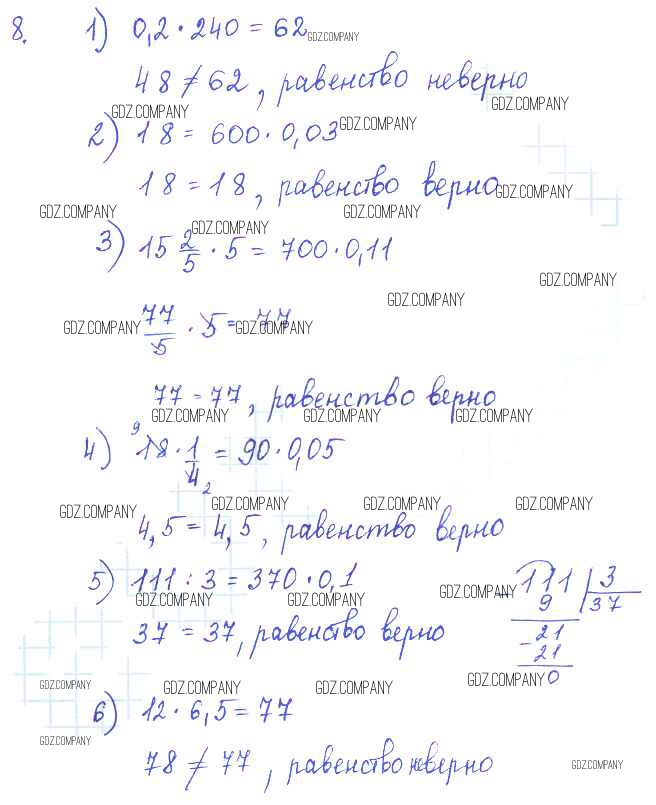 8. 1) 0,2 · 240 = 62 GDZ.COMPANY
48 ≠ 62, равенство неверно
GDZ.COMPANY GDZ.COMPANY
2) 18 = 600 · 0,03 GDZ.COMPANY
18 = 18, равенство верно GDZ.COMPANY
GDZ.COMPANY GDZ.COMPANY GDZ.COMPANY
3) 15 2/5 · 5 = 700 · 0,11
GDZ.COMPANY
GDZ.COMPANY
GDZ.COMPANY 77/5 · 5 = 77 GDZ.COMPANY
77 = 77, равенство верно
GDZ.COMPANY GDZ.COMPANY GDZ.COMPANY
9
4) 18 · 1/4 = 90 · 0,05
2
GDZ.COMPANY GDZ.COMPANY GDZ.COMPANY GDZ.COMPANY
4,5 = 4,5, равенство верно
5) 111 : 3 = 370 · 0,1
GDZ.COMPANY GDZ.COMPANY GDZ.COMPANY
37 = 37, равенство верно
- 111 | 3
9 37
- 21
21
0
GDZ.COMPANY GDZ.COMPANY GDZ.COMPANY GDZ.COMPANY
6) 12 · 6,5 = 77
GDZ.COMPANY
78 ≠ 77, равенство неверно GDZ.COMPANY